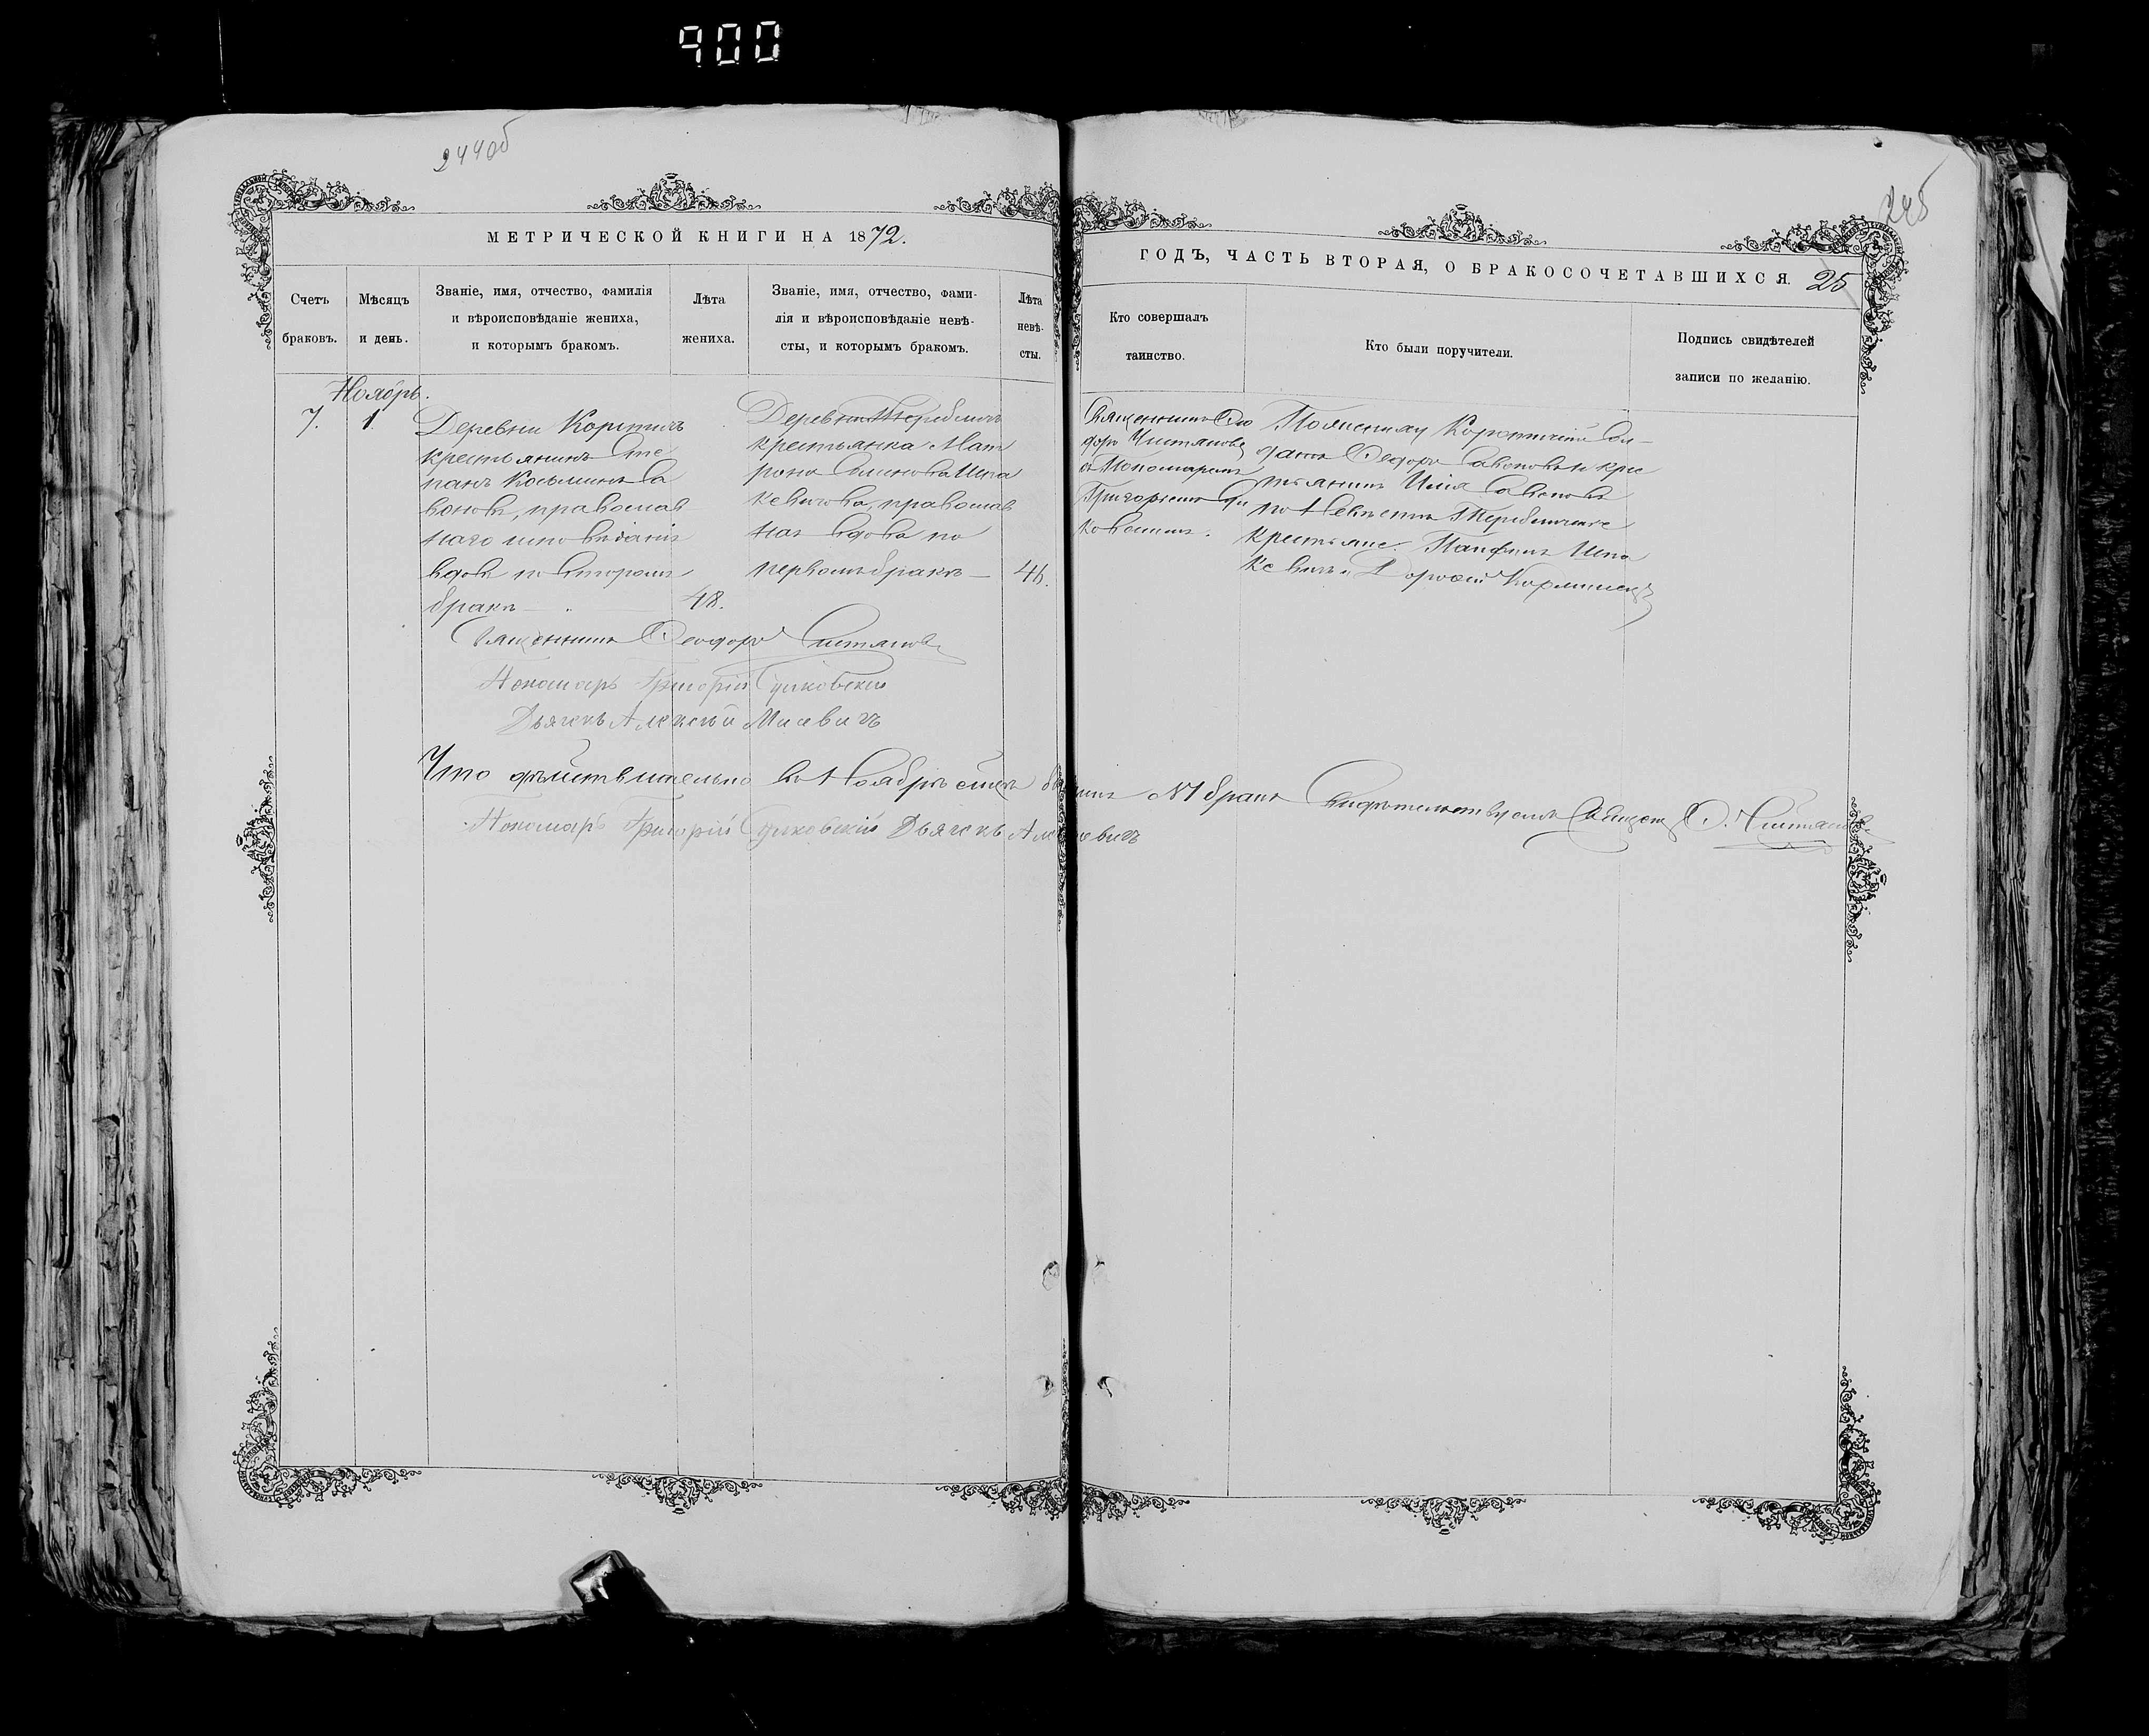 900
244об
245
МЕТРИЧЕСКОЙ КНИГИ НА 1872.
ГОДЪ, ЧАСТЬ ВТОРАЯ, О БРАКОСОЧЕТАВШИХСЯ. 25
Счетъ
браковъ.
Мѣсяцъ
и день.
Званіе, имя, отчество, фамилія
и вѣроисповѣданіе жениха,
и которымъ бракомъ.
Лѣта
жениха.
Званіе, имя, отчество, фами-
лія и вѣроисповѣданіе невѣ-
сты, и которымъ бракомъ.
Лѣта
невѣ-
сты.
Кто совершалъ
таинство.
Кто были поручители.
Подпись свидѣтелей
записи по желанію.
Ноябрь.
7.
1
Деревни Коротичъ
крестьянинъ Сте
панъ Косьминъ Са
воновъ, православ
наго исповѣданія
вдовъ по второмъ
бракѣ —
48.
Деревни Теребличъ
крестьянка Мат
рона
кевичова, православ
ная вдова по
первомъ бракѣ —
46.
Священникъ Ѳео
доръ Чистяковъ
съ Пономаремъ
Григоріемъ
По женихѣ
датъ Ѳеодоръ Савоновъ и кре
стьянинъ Илія Савоновъ
по Невѣстѣ Теребличскіе
крестьяне. Панфилъ
кевичъ и Дороѳей
Священникъ Ѳеодоръ Чистяковъ
Пономарь Григорій
Дьячекъ Алексѣй Мисевичъ
Что дѣйствительно въ Ноябрѣ семъ бракъ свидѣтельствуемъ Священ. Ѳ. Чистяковъ
Пономарь Григорій Дьячекъ